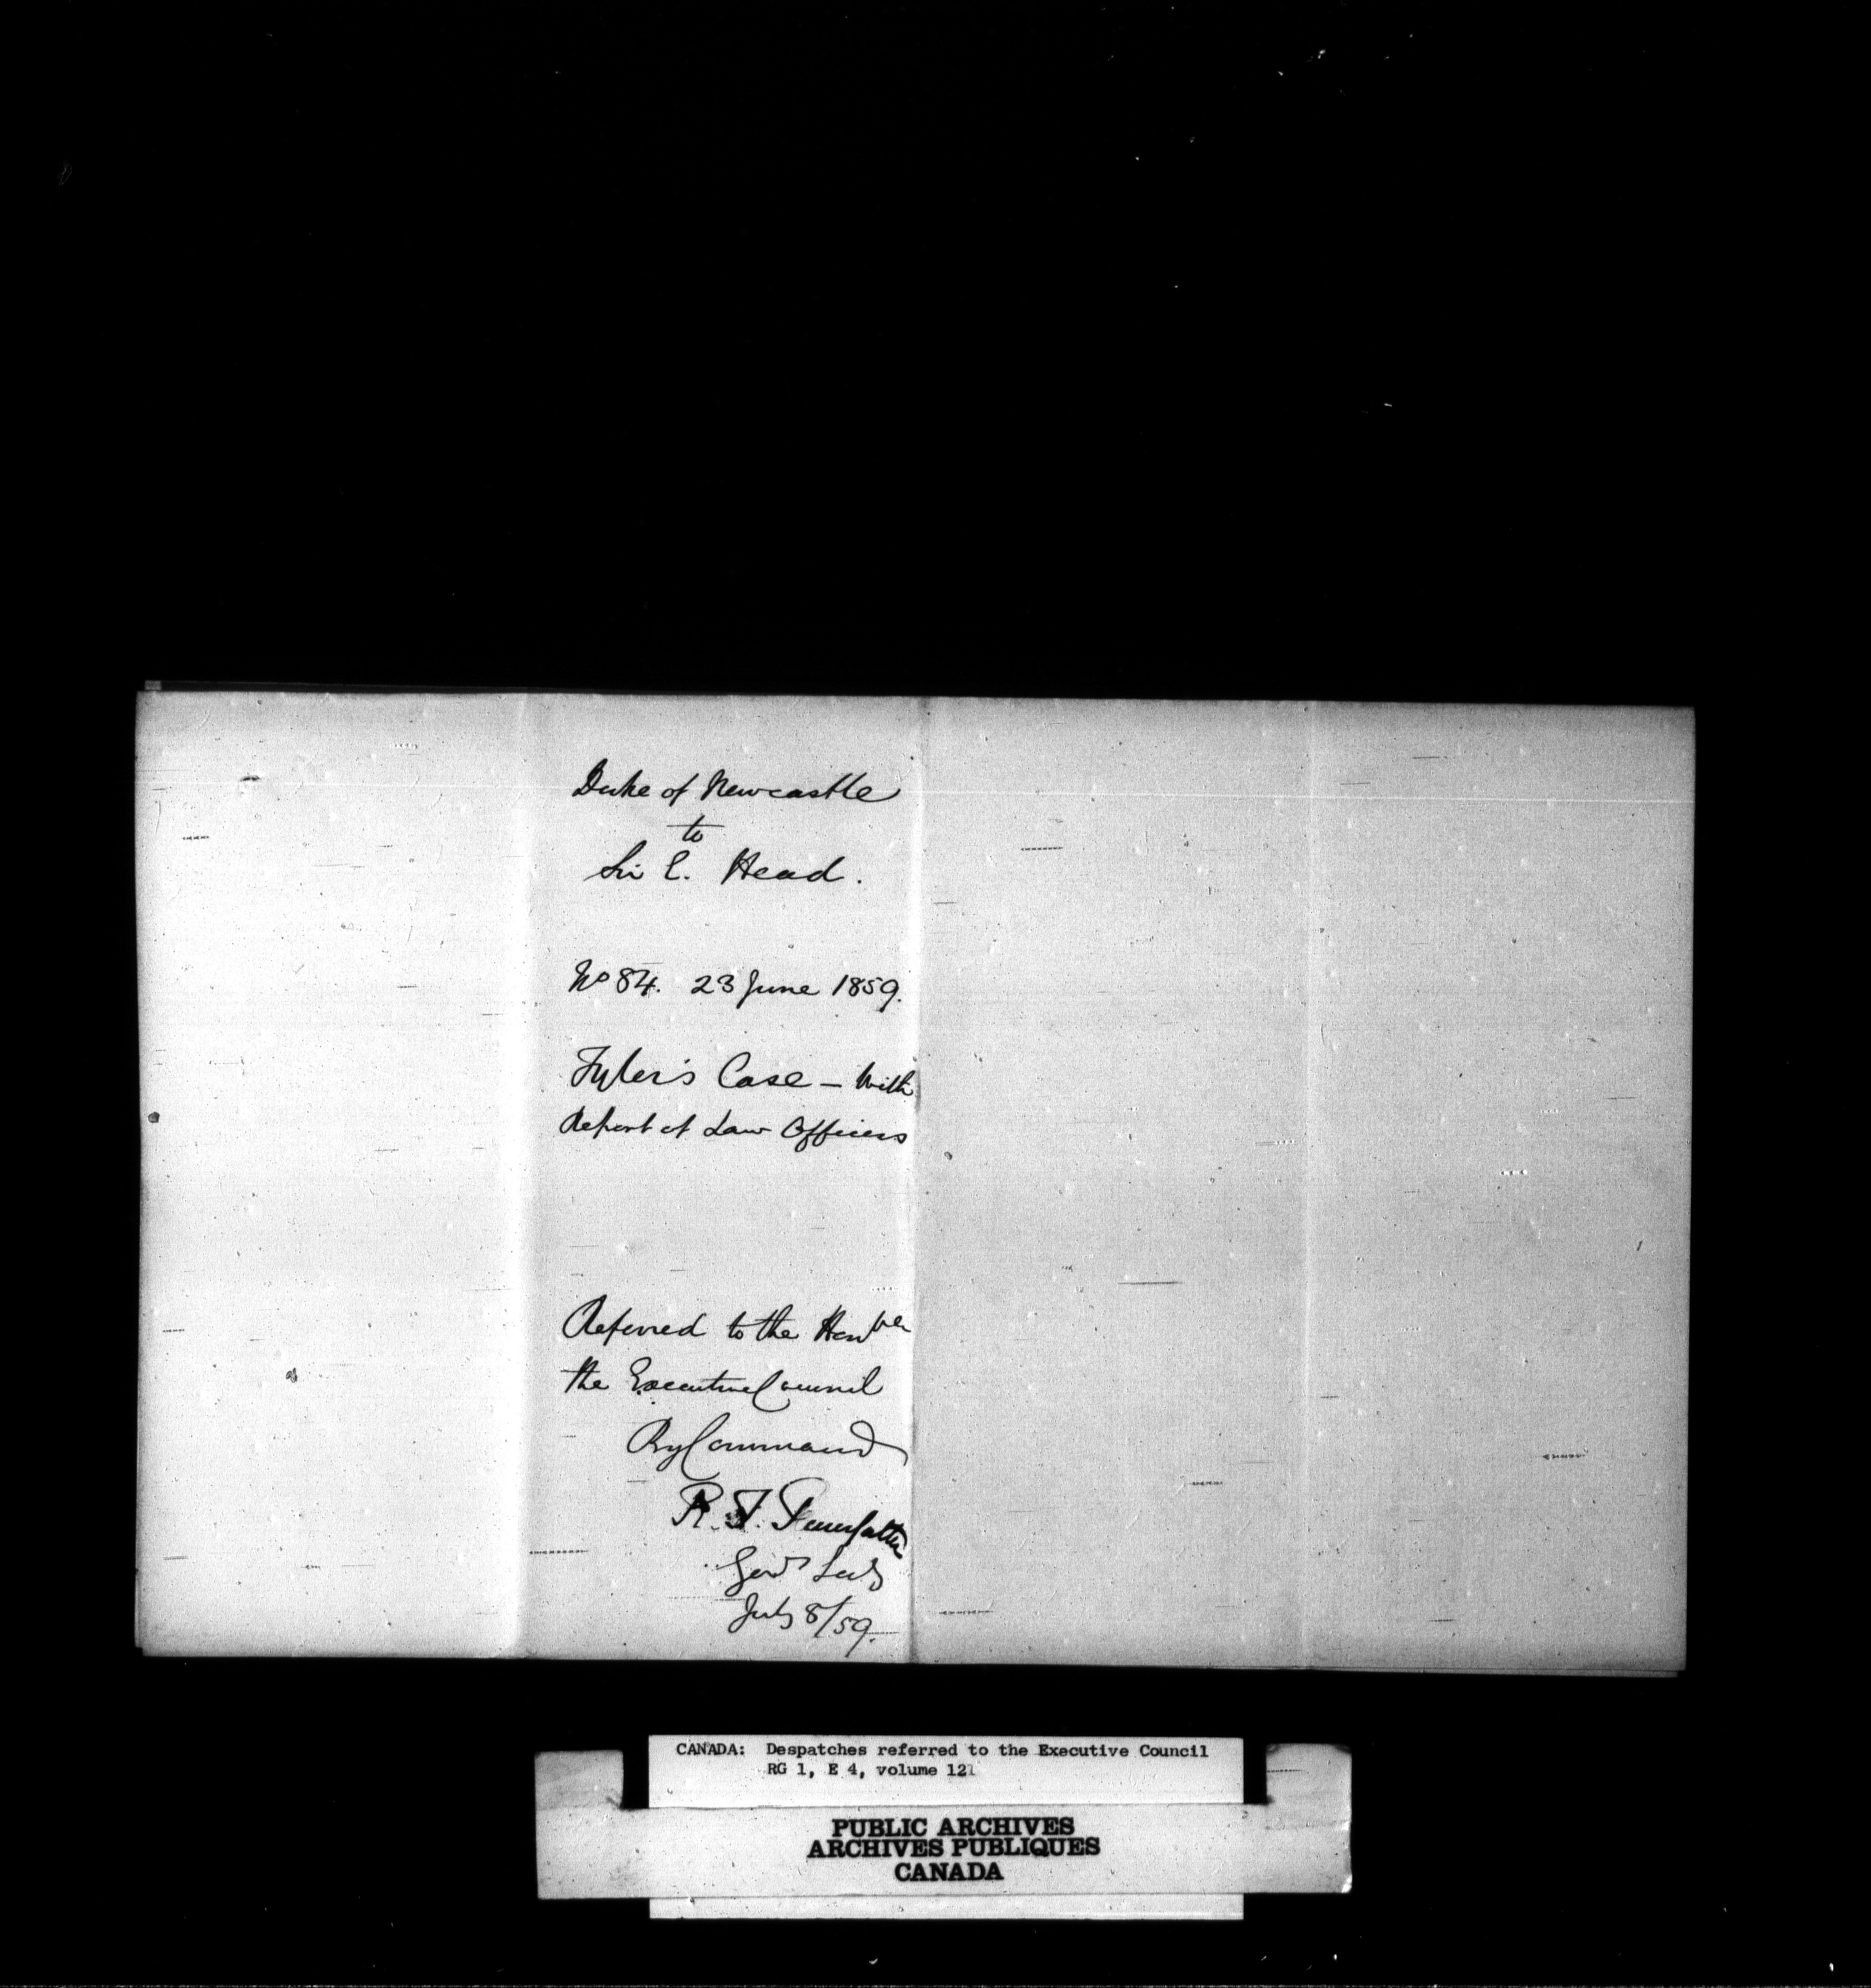 Duke of Newcastle
to
Sir E. Head.
No 84. 23 June 1859.
Tyler's Case – With
Report of Law Officers
Referred to the Honble
the Executive Council
By Command
R. T. Pennefather
Govr Secy
July 8/59.
CANADA: Despatches referred to the Executive Council
RG 1, E 4, volume 121
PUBLIC ARCHIVES
ARCHIVES PUBLIQUES
CANADA